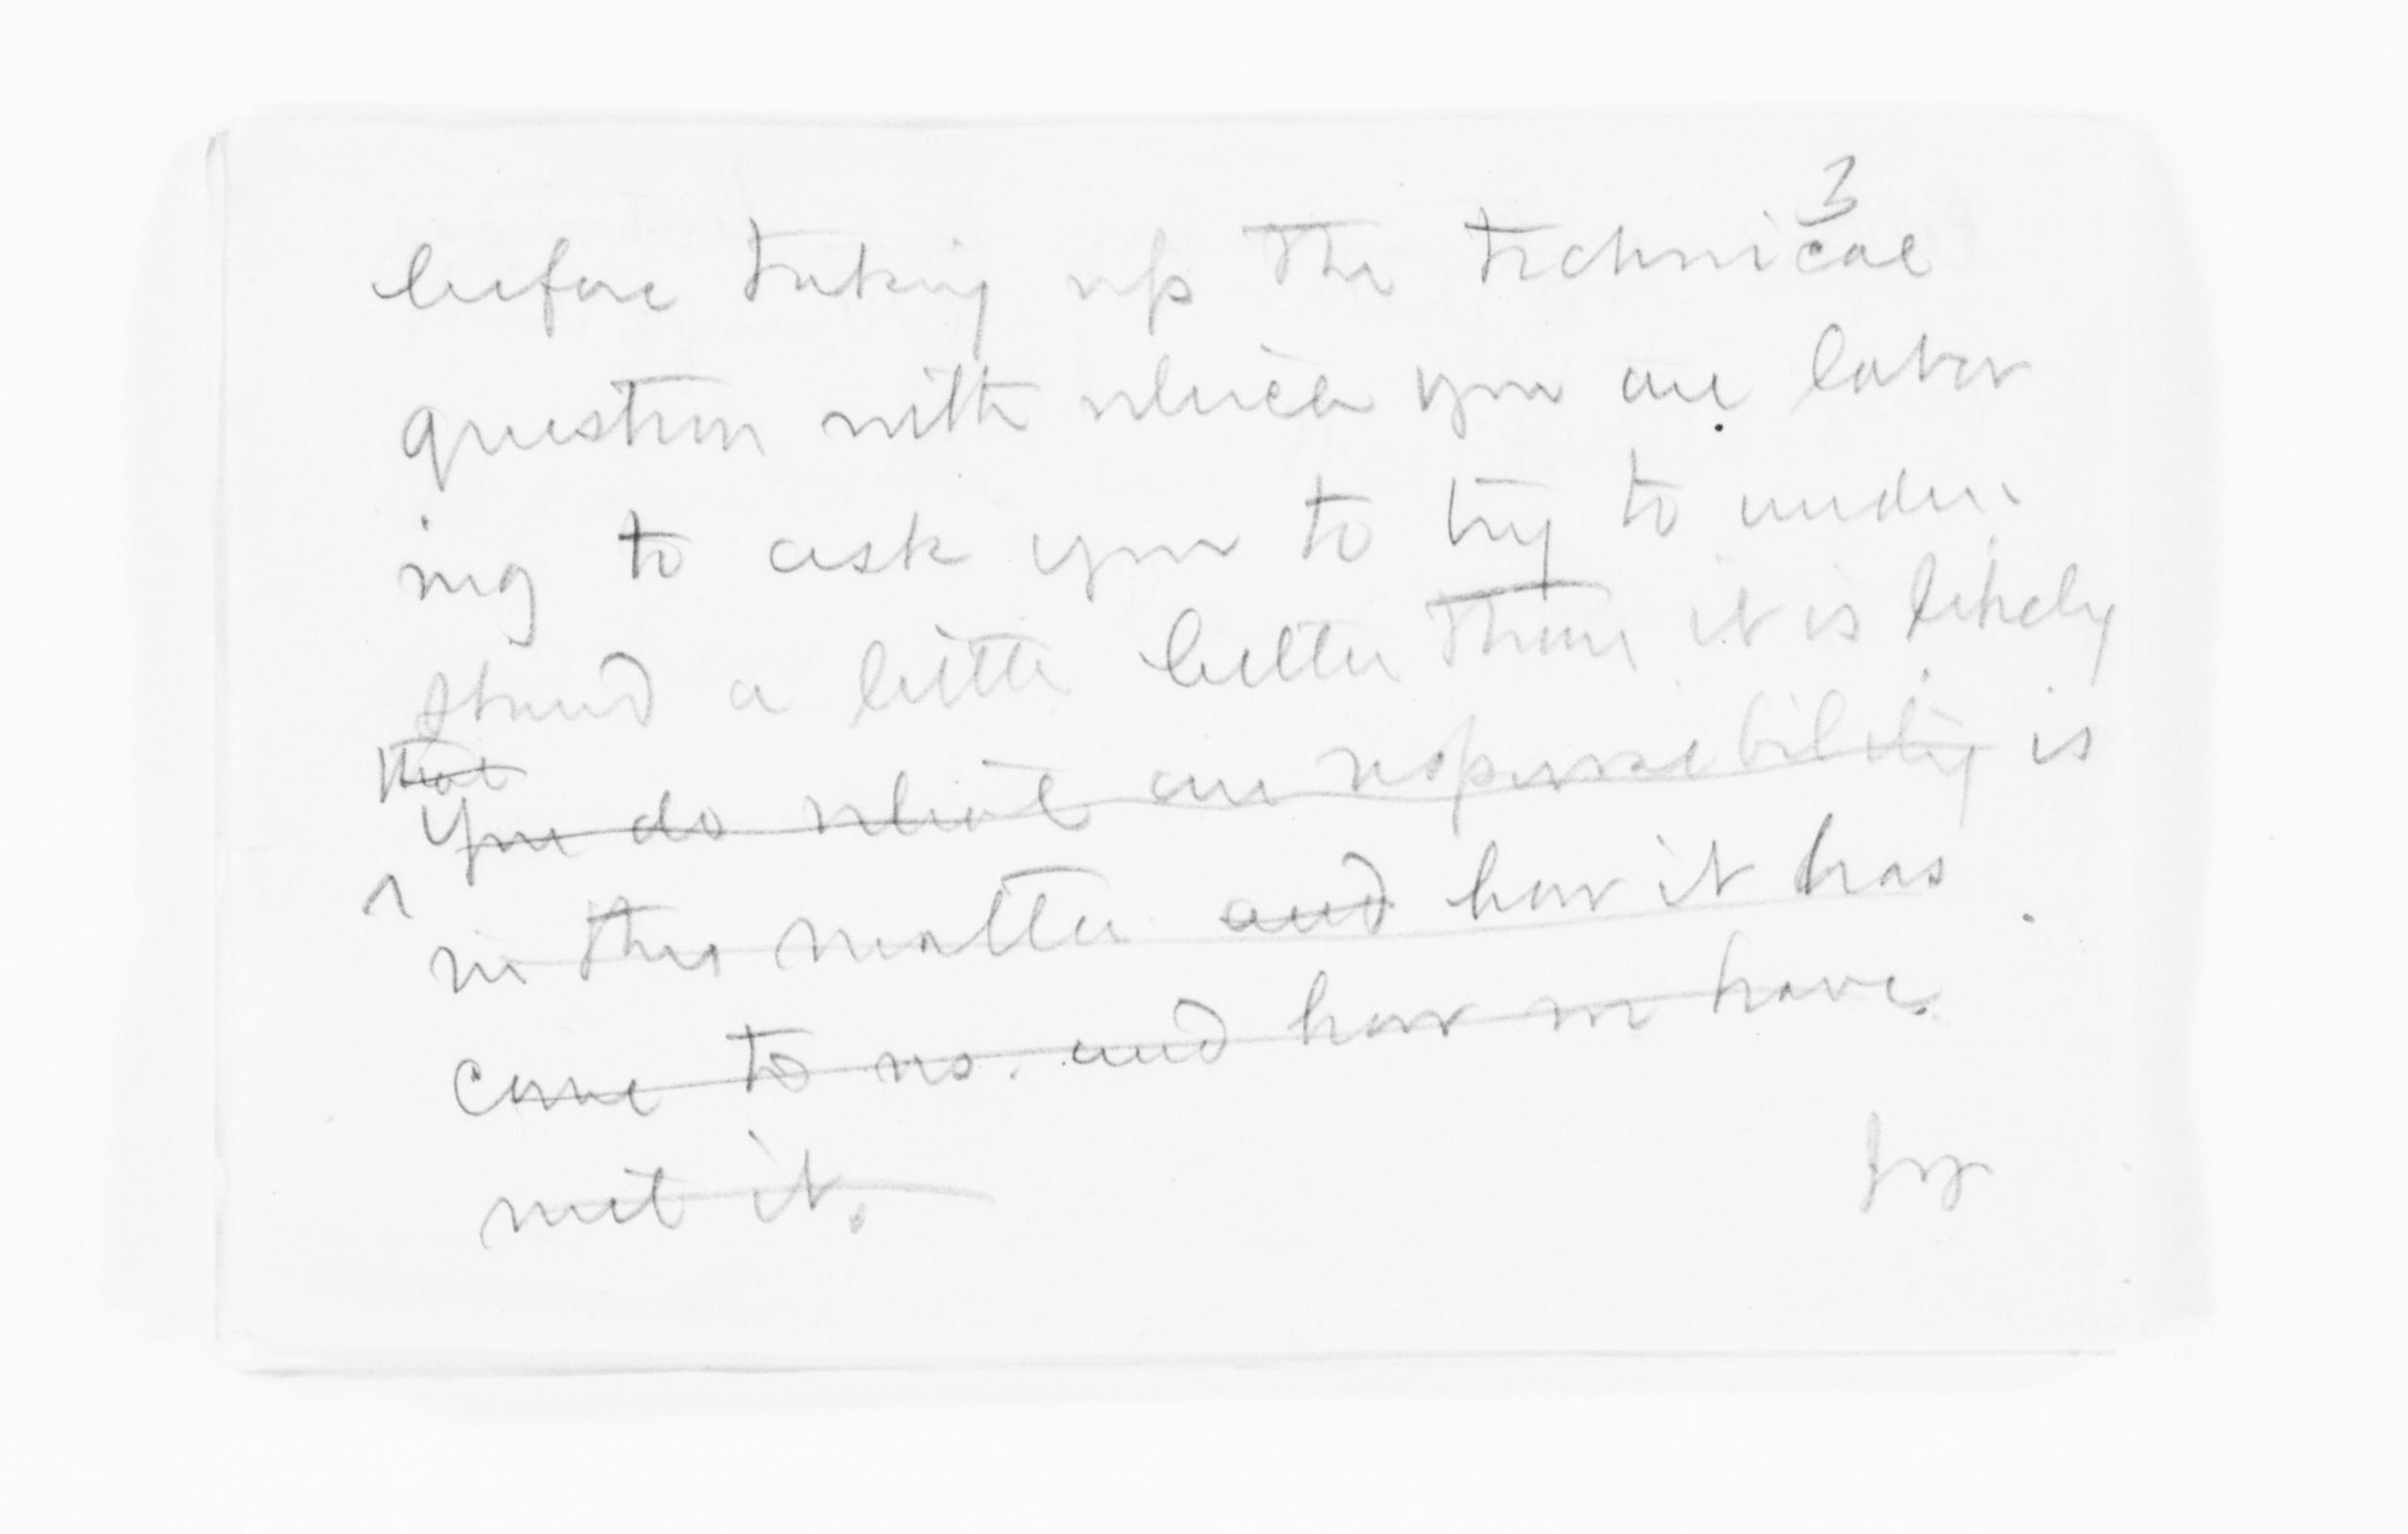 3
before taking up the technical
question with which you are labor
ing to ask you to try to under-
stand a little better than it is likely
that
you do what our responsibility is
^ in this matter and how it has
come to us. and how we have
met it.